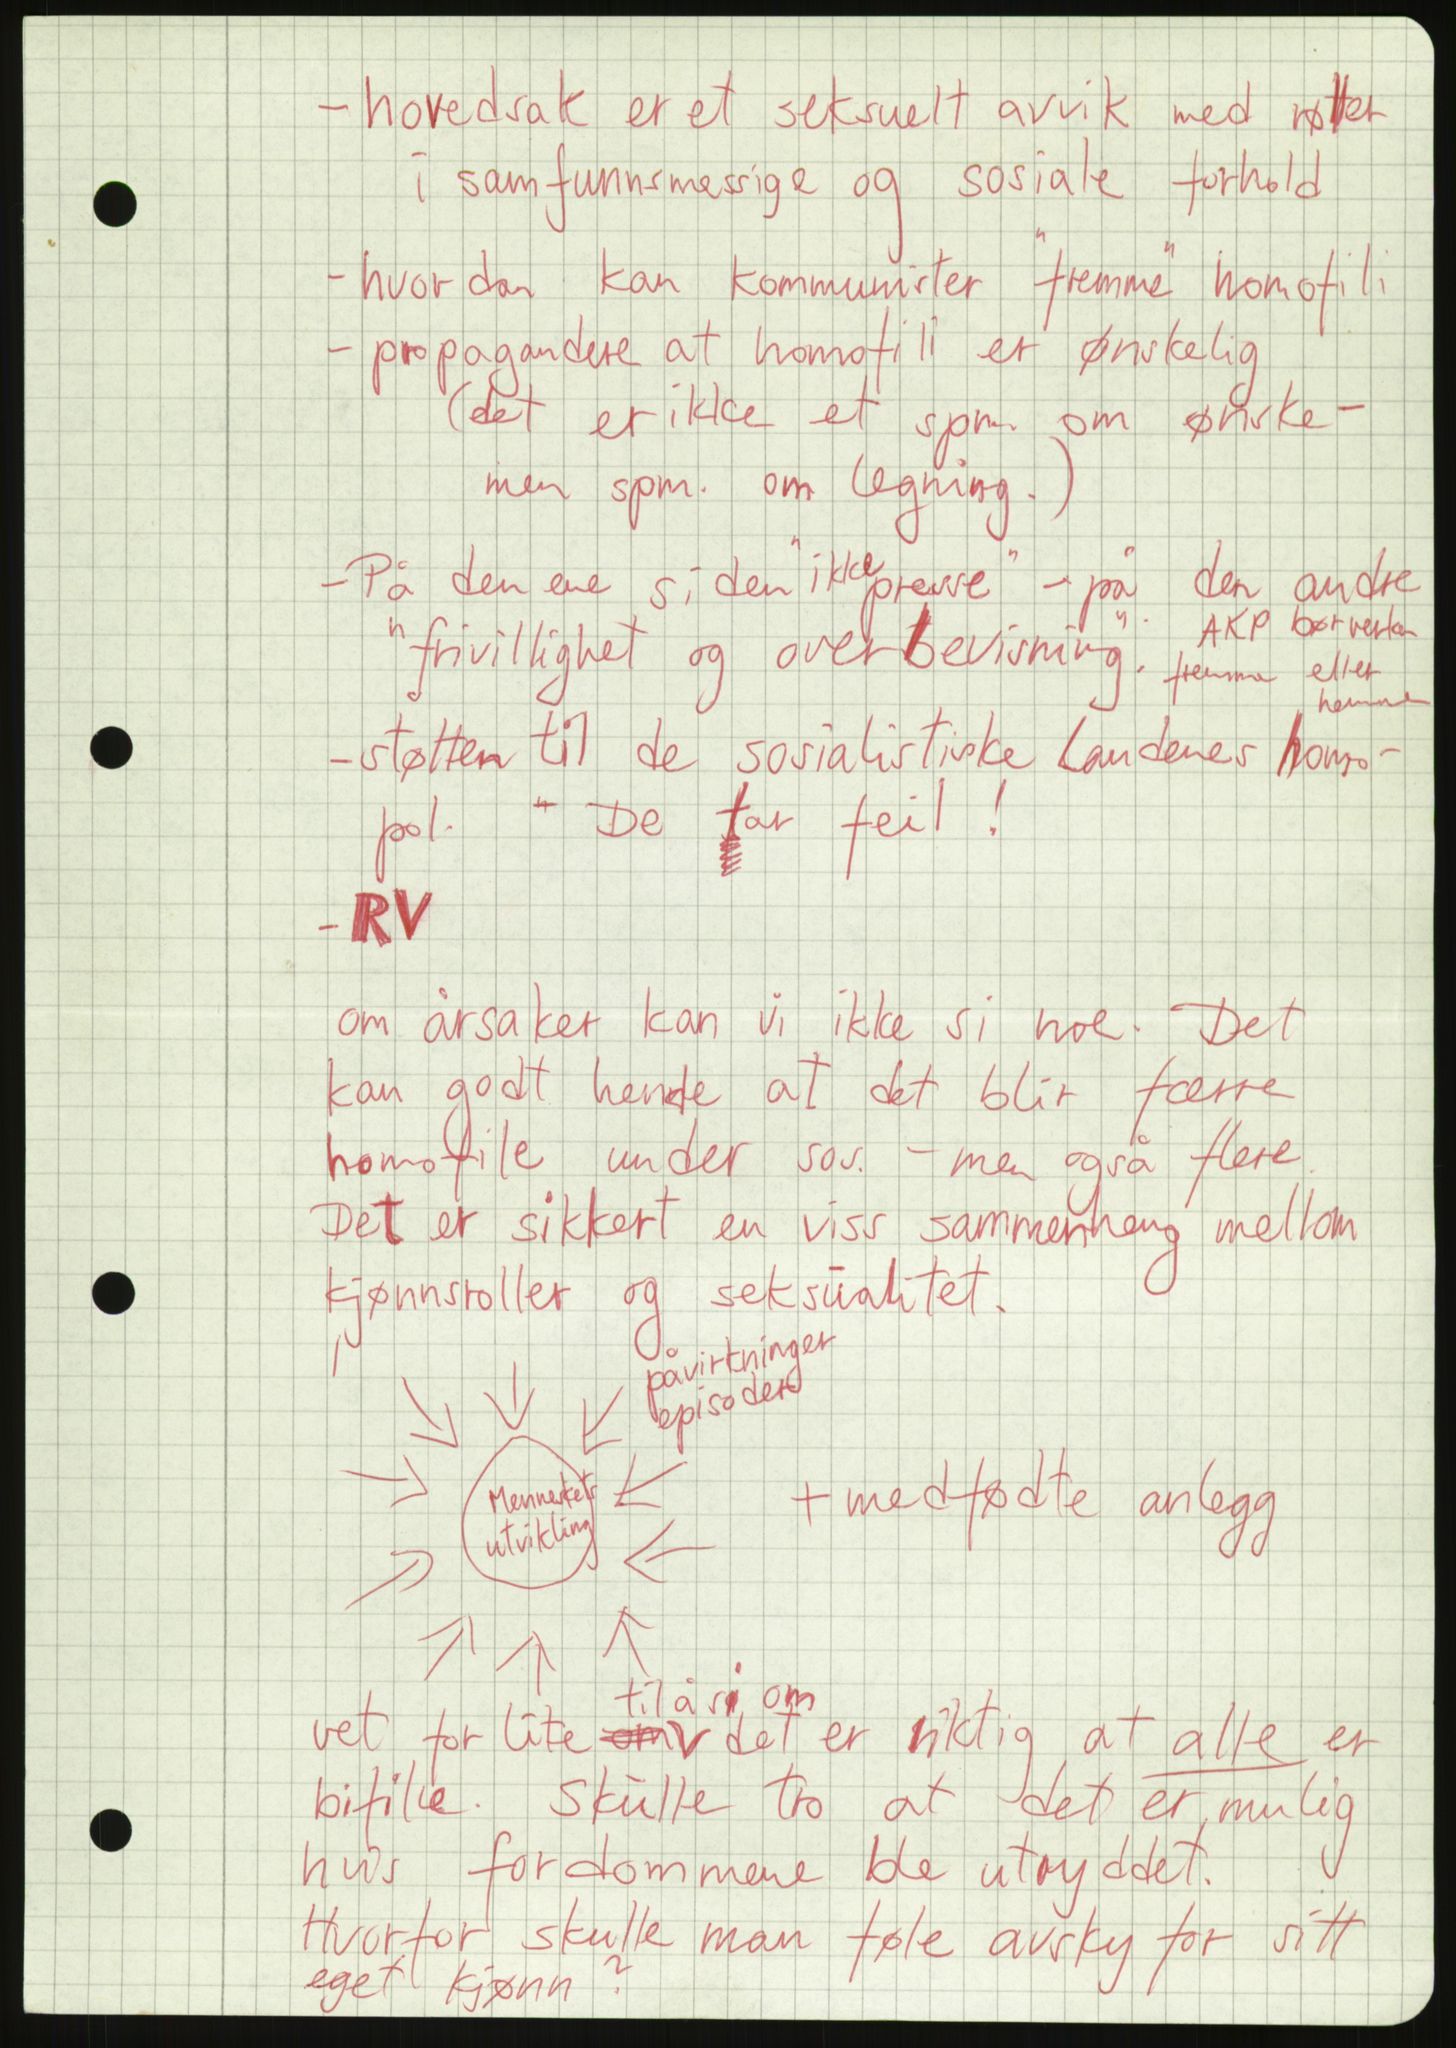 - hovedsak er et seksuelt avvik med røtter
i samfunnsmessige og sosiale forhold
- hvordan kan kommunister "fremme" homofili
- propagandere at homofili er ønskelig
(det er ikke et spm. om ønske -
men spm. om legning.)
- På den ene siden "ikke presse" - på den andre
"frivillighet og overbevisning".
AKP bør verken
fremme eller
hemme
- støtten til de sosialistiske landenes homo-
pol. - De tar feil!
- RV
om årsaker kan vi ikke si noe. Det
kan godt hende at det blir færre
homofile under sos. - men også flere.
Det er sikkert en viss sammenheng mellom
kjønnsroller og seksualitet.
påvirkninger
episoder
Menneskets
utvikling
+ medfødte anlegg
til å si om
vet for lite om det er riktig at alle er
bifile. Skulle tro at det er mulig
hvis fordommene ble utryddet.
Hvorfor skulle man føle avsky for sitt
eget kjønn?